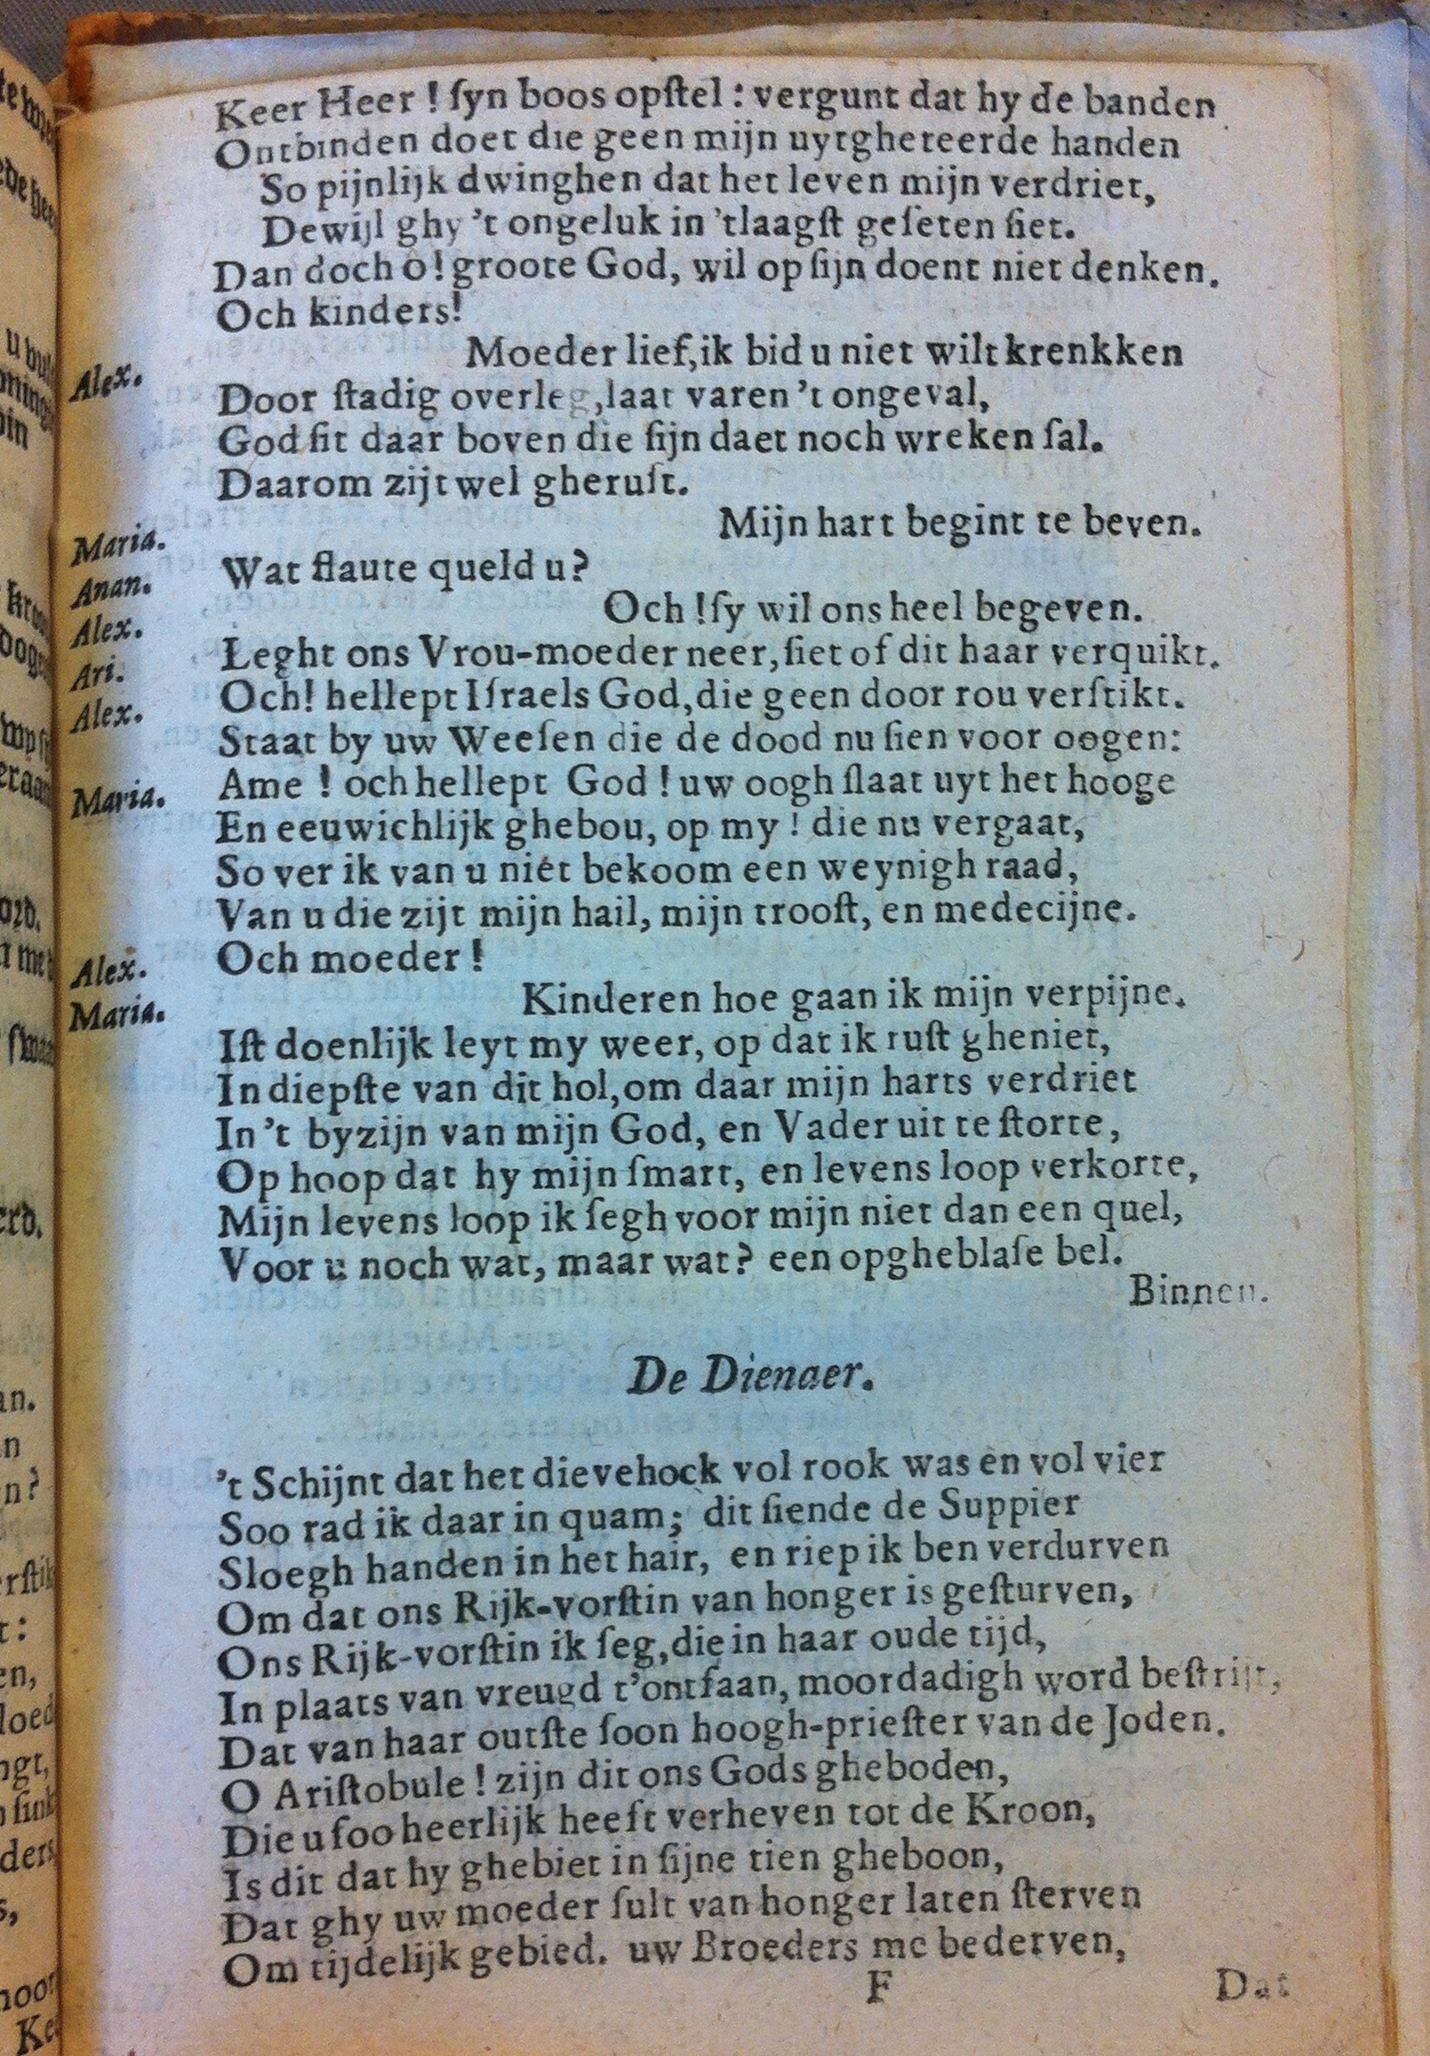 Keer Heer ! ſyn boos opſtel : vergunt dat hy de banden
Ontbinden doet die geen mijn uytghereerde handen
So pijnlijk dwinghen dat het leven mijn verdriet,
Dewijl ghy 't ongeluk in 'tlaagſt geſeten ſiet.
Dan doch ô! groote God, wil op ſijn doent niet denken.
Och kinders!
Alex. Moeder lief, ik bid u niet wilt krenkken
Door ſtadig overleg, laat varen 't ongeval,
God ſit daar boven die ſijn daet noch wreken ſal.
Daarom zijt wel gheruſt.
Maria. Mijn hart begint te beven.
Anan. Wat flaute queld u?
Alex. Och ! ſy wil ons heel begeven.
Ari. Leght ons Vrou-moeder neer, ſiet of dit haar verquikt.
Alex. Och! hellept Iſraels God, die geen door rou verſtikt.
Staat by uw Weeſen die de dood nu ſien voor oogen:
Maria. Ame ! och hellept God ! uw oogh ſlaat uyt het hooge
En eeuwichlijk ghebou, op my ! die nu vergaat,
So ver ik van u niét bekoom een weynigh raad,
Van u die zijt mijn hail, mijn trooſt, en medecijne.
Alex. Och moeder !
Maria. Kinderen hoe gaan ik mijn verpijne.
Iſt doenlijk leyt my weer, op dat ik ruſt gheniet,
In diepſte van dit hol, om daar mijn harts verdriet
In 't byzijn van mijn God, en Vader uit te ſtorte,
Op hoop dat hy mijn ſmart, en levens loop verkorte,
Mijn levens loop ik ſegh voor mijn niet dan een quel,
Voor u noch wat, maar wat? een opgheblaſe bel.
Binnen.
De Dienaer.
't Schijnt dat het dievehock vol rook was en vol vier
Soo rad ik daar in quam; dit ſiende de Suppier
Sloegh handen in het hair, en riep ik ben verdurven
Om dat ons Rijk-vorſtin van honger is geſturven,
Ons Rijk-vorſtin ik ſeg, die in haar oude tijd,
In plaats van vreugd t'ontfaan, moordadigh word beſtrijt,
Dat van haar outſte ſoon hoogh-prieſter van de Joden.
O Ariſtobule ! zijn dit ons Gods gheboden,
Die u ſoo heerlijk heeft verheven tot de Kroon,
Is dit dat hy ghebiet in ſijne tien gheboon,
Dat ghy uw moeder ſult van honger laten ſterven
Om tijdelijk gebied. uw Broeders me bederven,
F Dat